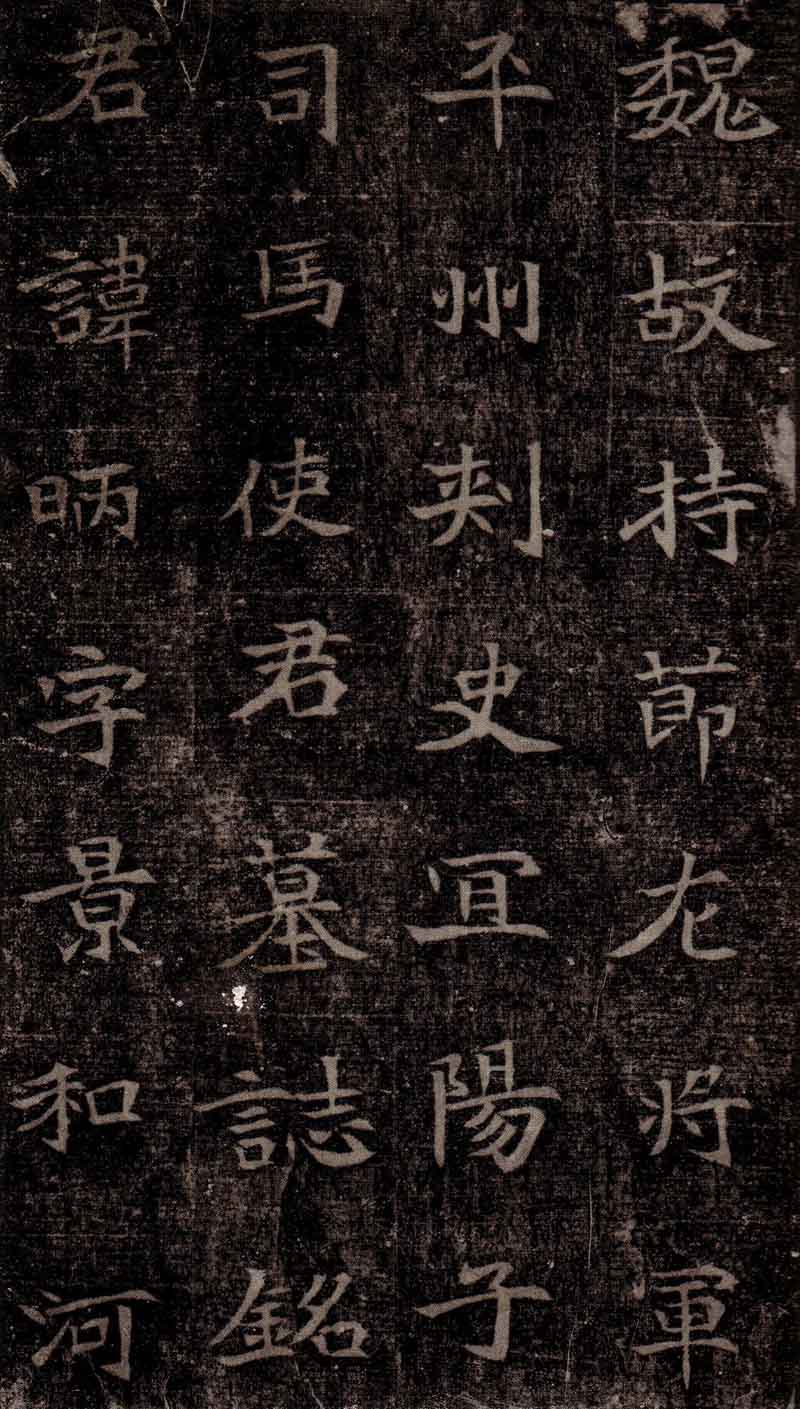 魏故持節左將軍
平州刾史冝陽子
司馬使君墓誌銘
君諱昞字景和河